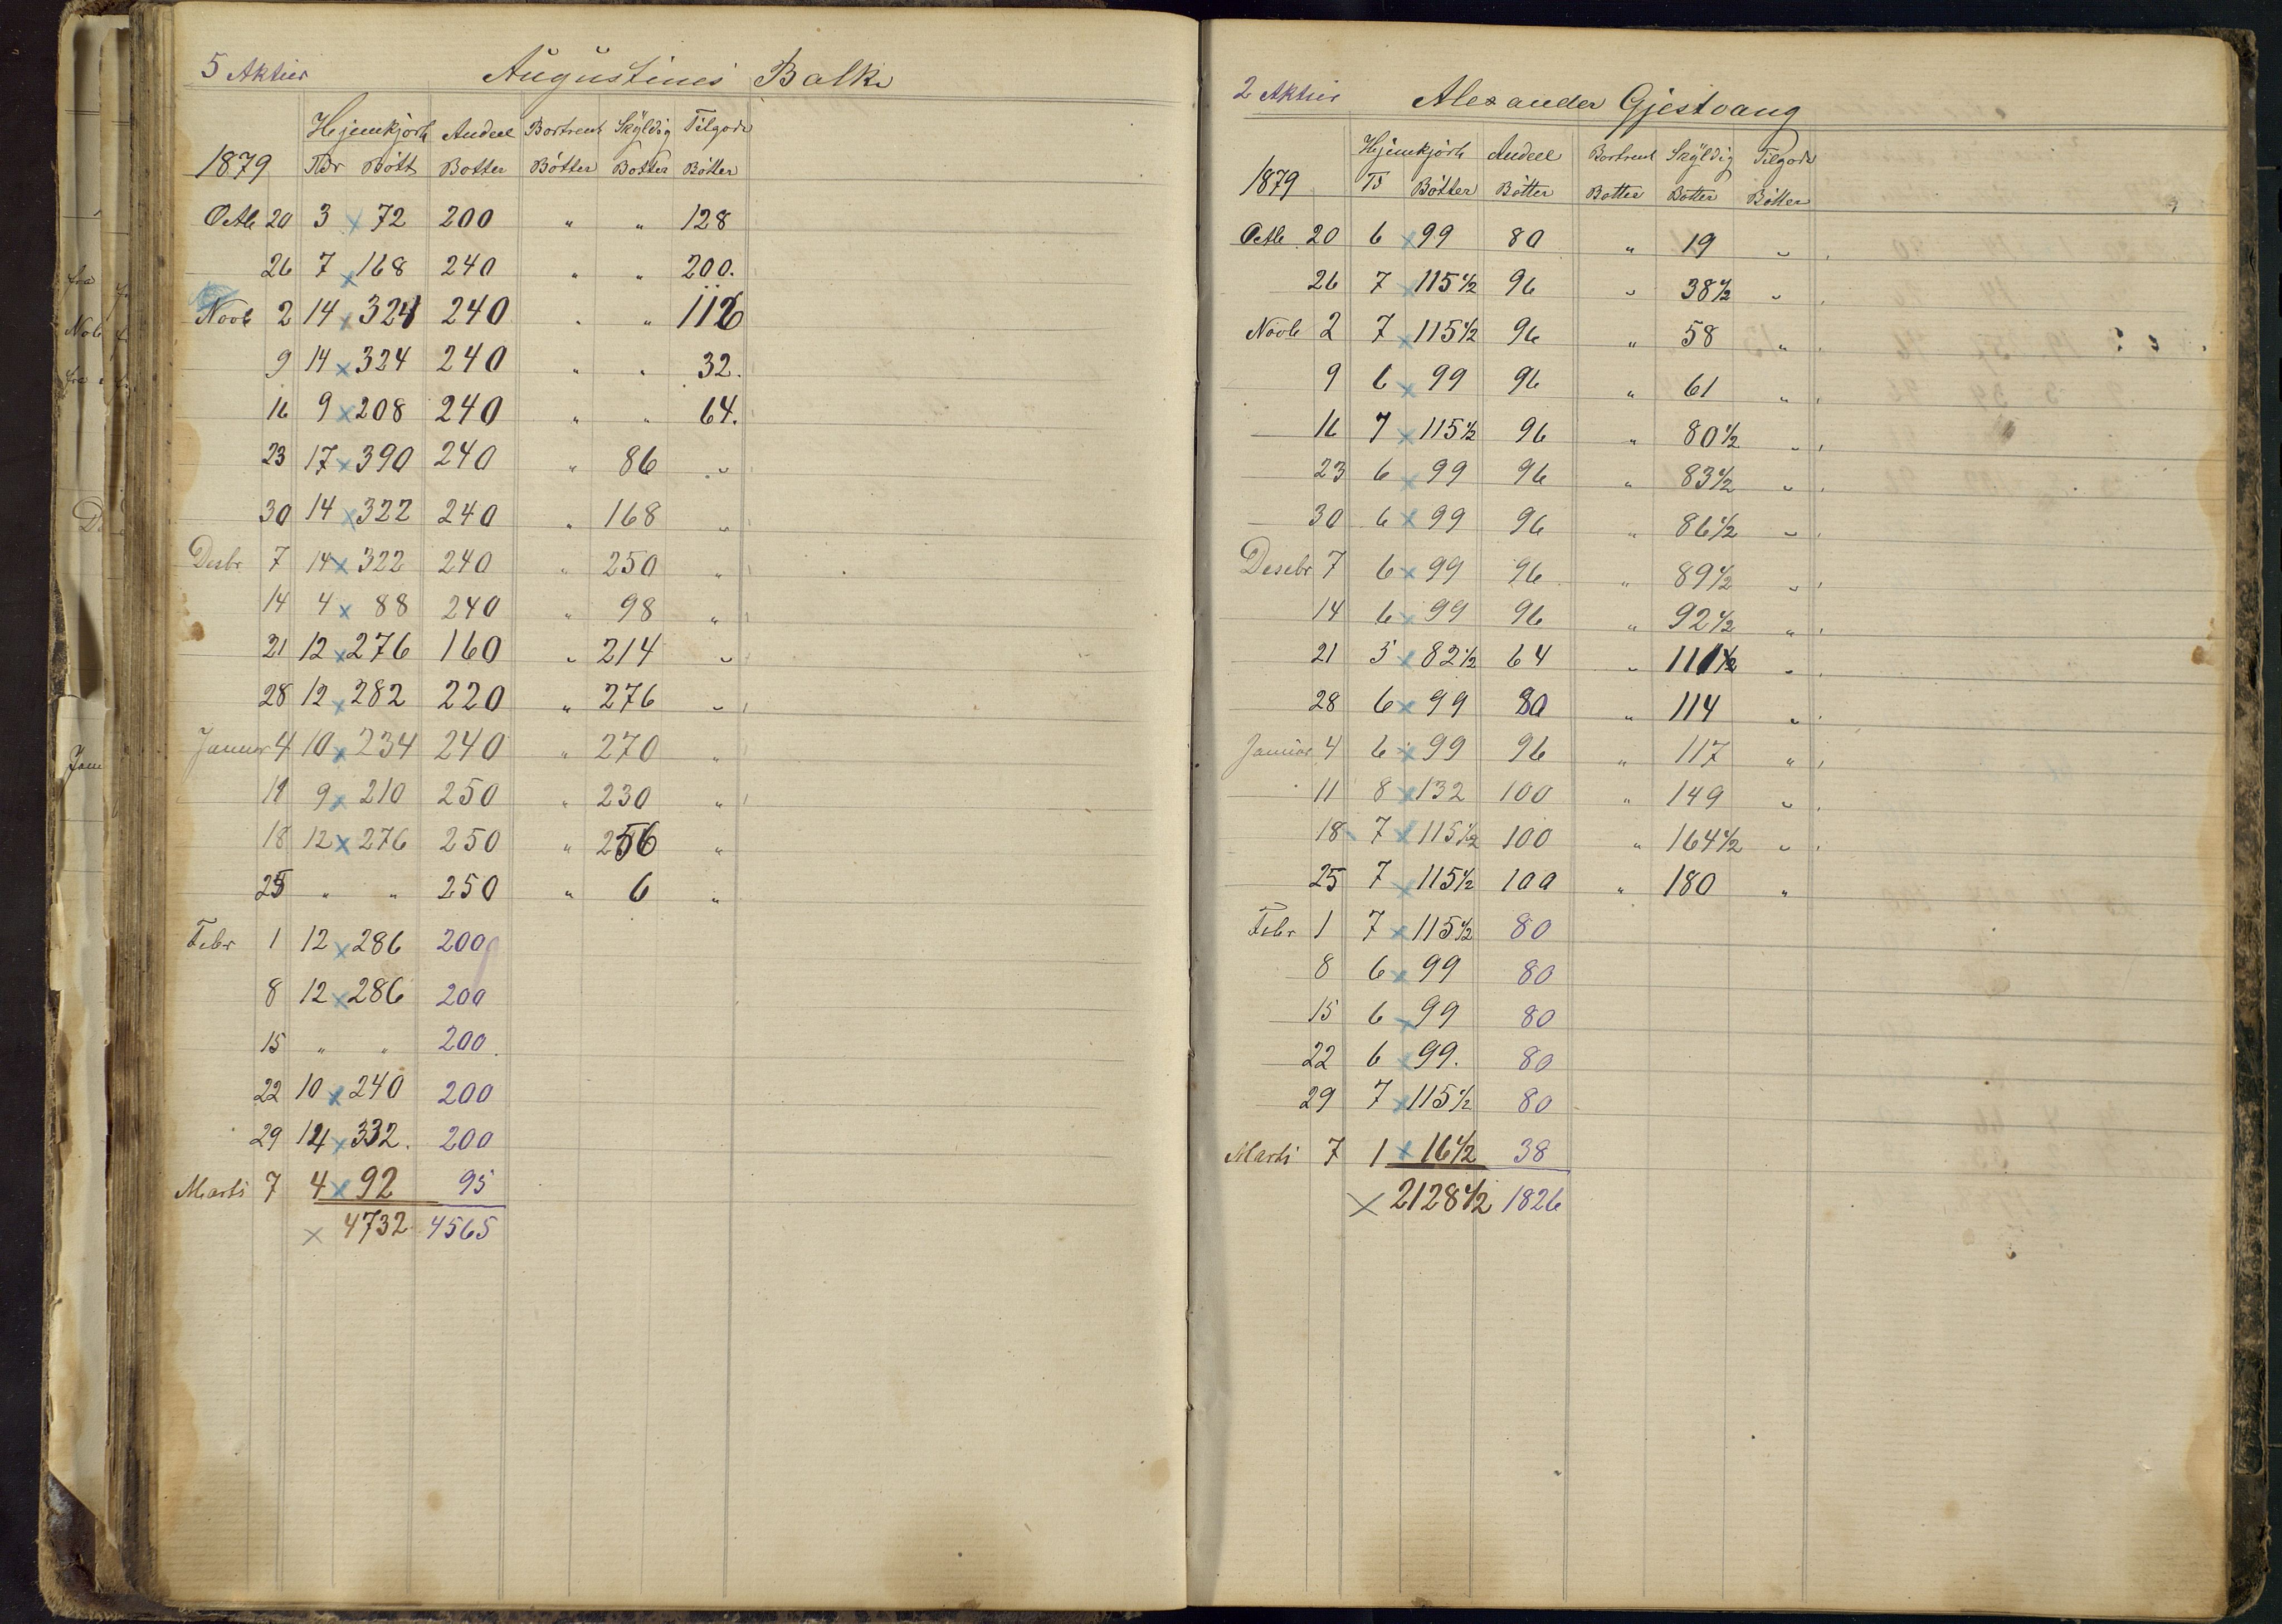 5 Aktier Augustinus Balke
Hjemkjørte Andeel Bortrent Skÿldig Tilgode
1879 Tdr Bøtt Bøtter Bøtter Bøtter Bøtter
Octb 20 3 x 72 200 " " 128
26 7 x 168 240 " " 200.
Novb 2 14 x 324 240 " " 116
9 14 x 324 240 " " 32.
16 9 x 208 240 " " 64.
23 17 x 390 240 " 86 "
30 14 x 322 240 " 168 "
Desbr 7 14 x 322 240 " 250 "
14 4 x 88 240 " 98 "
21 12 x 276 160 " 214 "
28 12 x 282 220 " 276 "
Januar 4 10 x 234 240 " 270 "
11 9 x 210 250 " 230 "
18 12 x 276 250 " 256 "
25 " " 250 " 6 "
Febr 1 12 x 286 200
8 12 x 286 200
15 " " 200
22 10 x 240 200
29 14 x 332. 200
Marts 7 4 x 92 95
x 4732 4565
2 Aktier Alexander Gjestvang
Hjemkjørte Andeel Bortrent Skÿldig Tilgode
1879 Td Bøtter Bøtter Bøtter Bøtter Bøtter
Octb 20 6 x 99 80 " 19 "
26 7 x 115½ 96 " 38½ "
Novb 2 7 x 115½ 96 " 58 "
9 6 x 99 96 " 61 "
16 7 x 115½ 96 " 80½ "
23 6 x 99 96 " 83½ "
30 6 x 99 96 " 86½ "
Desebr 7 6 x 99 96 " 89½ "
14 6 x 99 96 " 92½ "
21 5 x 82½ 64 " 111½ "
28 6 x 99 80 " 114 "
Januar 4 6 x 99 96 " 117 "
11 8 x 132 100 " 149 "
18 7 x 115½ 100 " 164½ "
25 7 x 115½ 100 " 180 "
Febr 1 7 x 115½ 80
8 6 x 99 80
15 6 x 99 80
22 6 x 99. 80
29 7 x 115½ 80
Marts 7 1 x 16½ 38
x 2128½ 1826